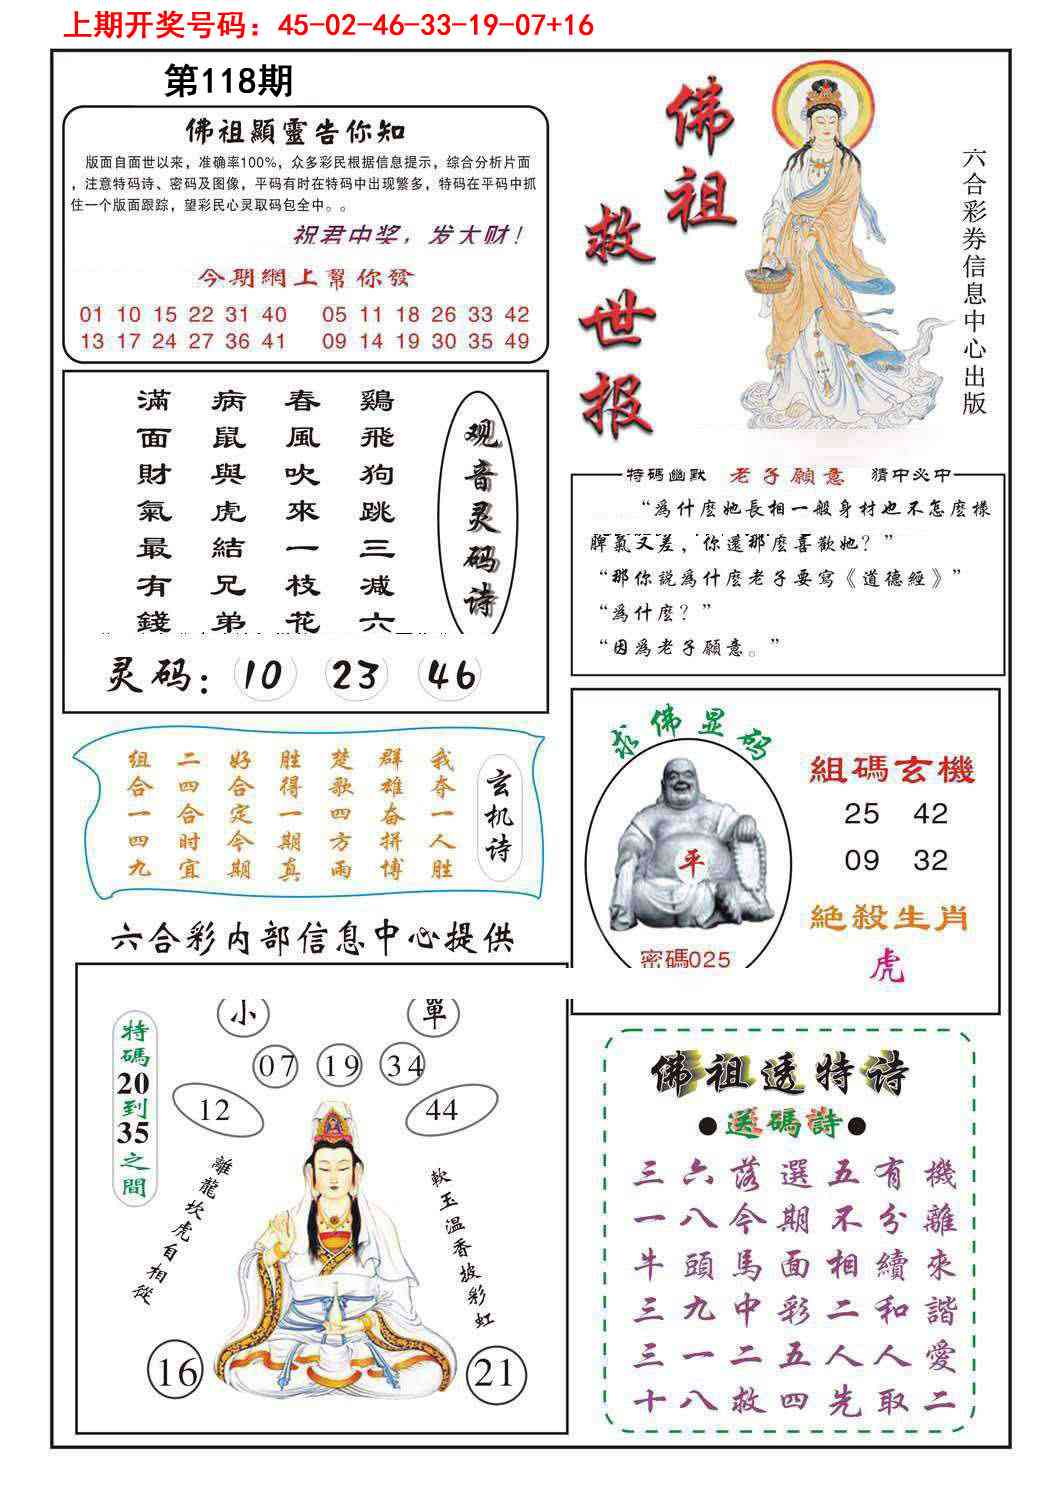 上期开奖号码：45-02-46-33-19-07+16
第118期
佛祖顯靈告你知
版面自面世以来，准确率100%，众多彩民根据信息提示，综合分析片面
，注意特码诗、密码及图像，平码有时在特码中出现繁多，特码在平码中抓
住一个版面跟踪，望彩民心灵取码包全中。。
祝君中奖，发大财！
今期網上幫你發
01 10 15 22 31 40 05 11 18 26 33 42
13 17 24 27 36 41 09 14 19 30 35 49
佛祖
救世报
六合彩券信息中心出版
观音灵码诗
鷄飛狗跳三减六
春風吹來一枝花
病鼠與虎結兄弟
滿面財氣最有錢
灵码：10 23 46
特碼幽默 老子願意 猜中必中
“爲什麽她長相一般身材也不怎麽樣
脾氣又差，你還那麽喜歡她？”
“那你説爲什麽老子要寫《道德經》”
“爲什麽？”
“因爲老子願意。”
玄机诗
我夺一人胜
群雄奋拼博
楚歌四方雨
胜得一期真
好合定今期
二四合时宜
组合一四九
求佛显码
平
密碼025
組碼玄機
25 42
09 32
絕殺生肖
虎
六合彩内部信息中心提供
小 單
07 19 34
12 44
特碼20到35之間
離龍坎虎自相從
軟玉温香披彩虹
16 21
佛祖透特诗
●送碼詩●
三六落選五有機
一八今期不分離
牛頭馬面相續來
三九中彩二和諧
三一二五人人愛
十八救四先取二